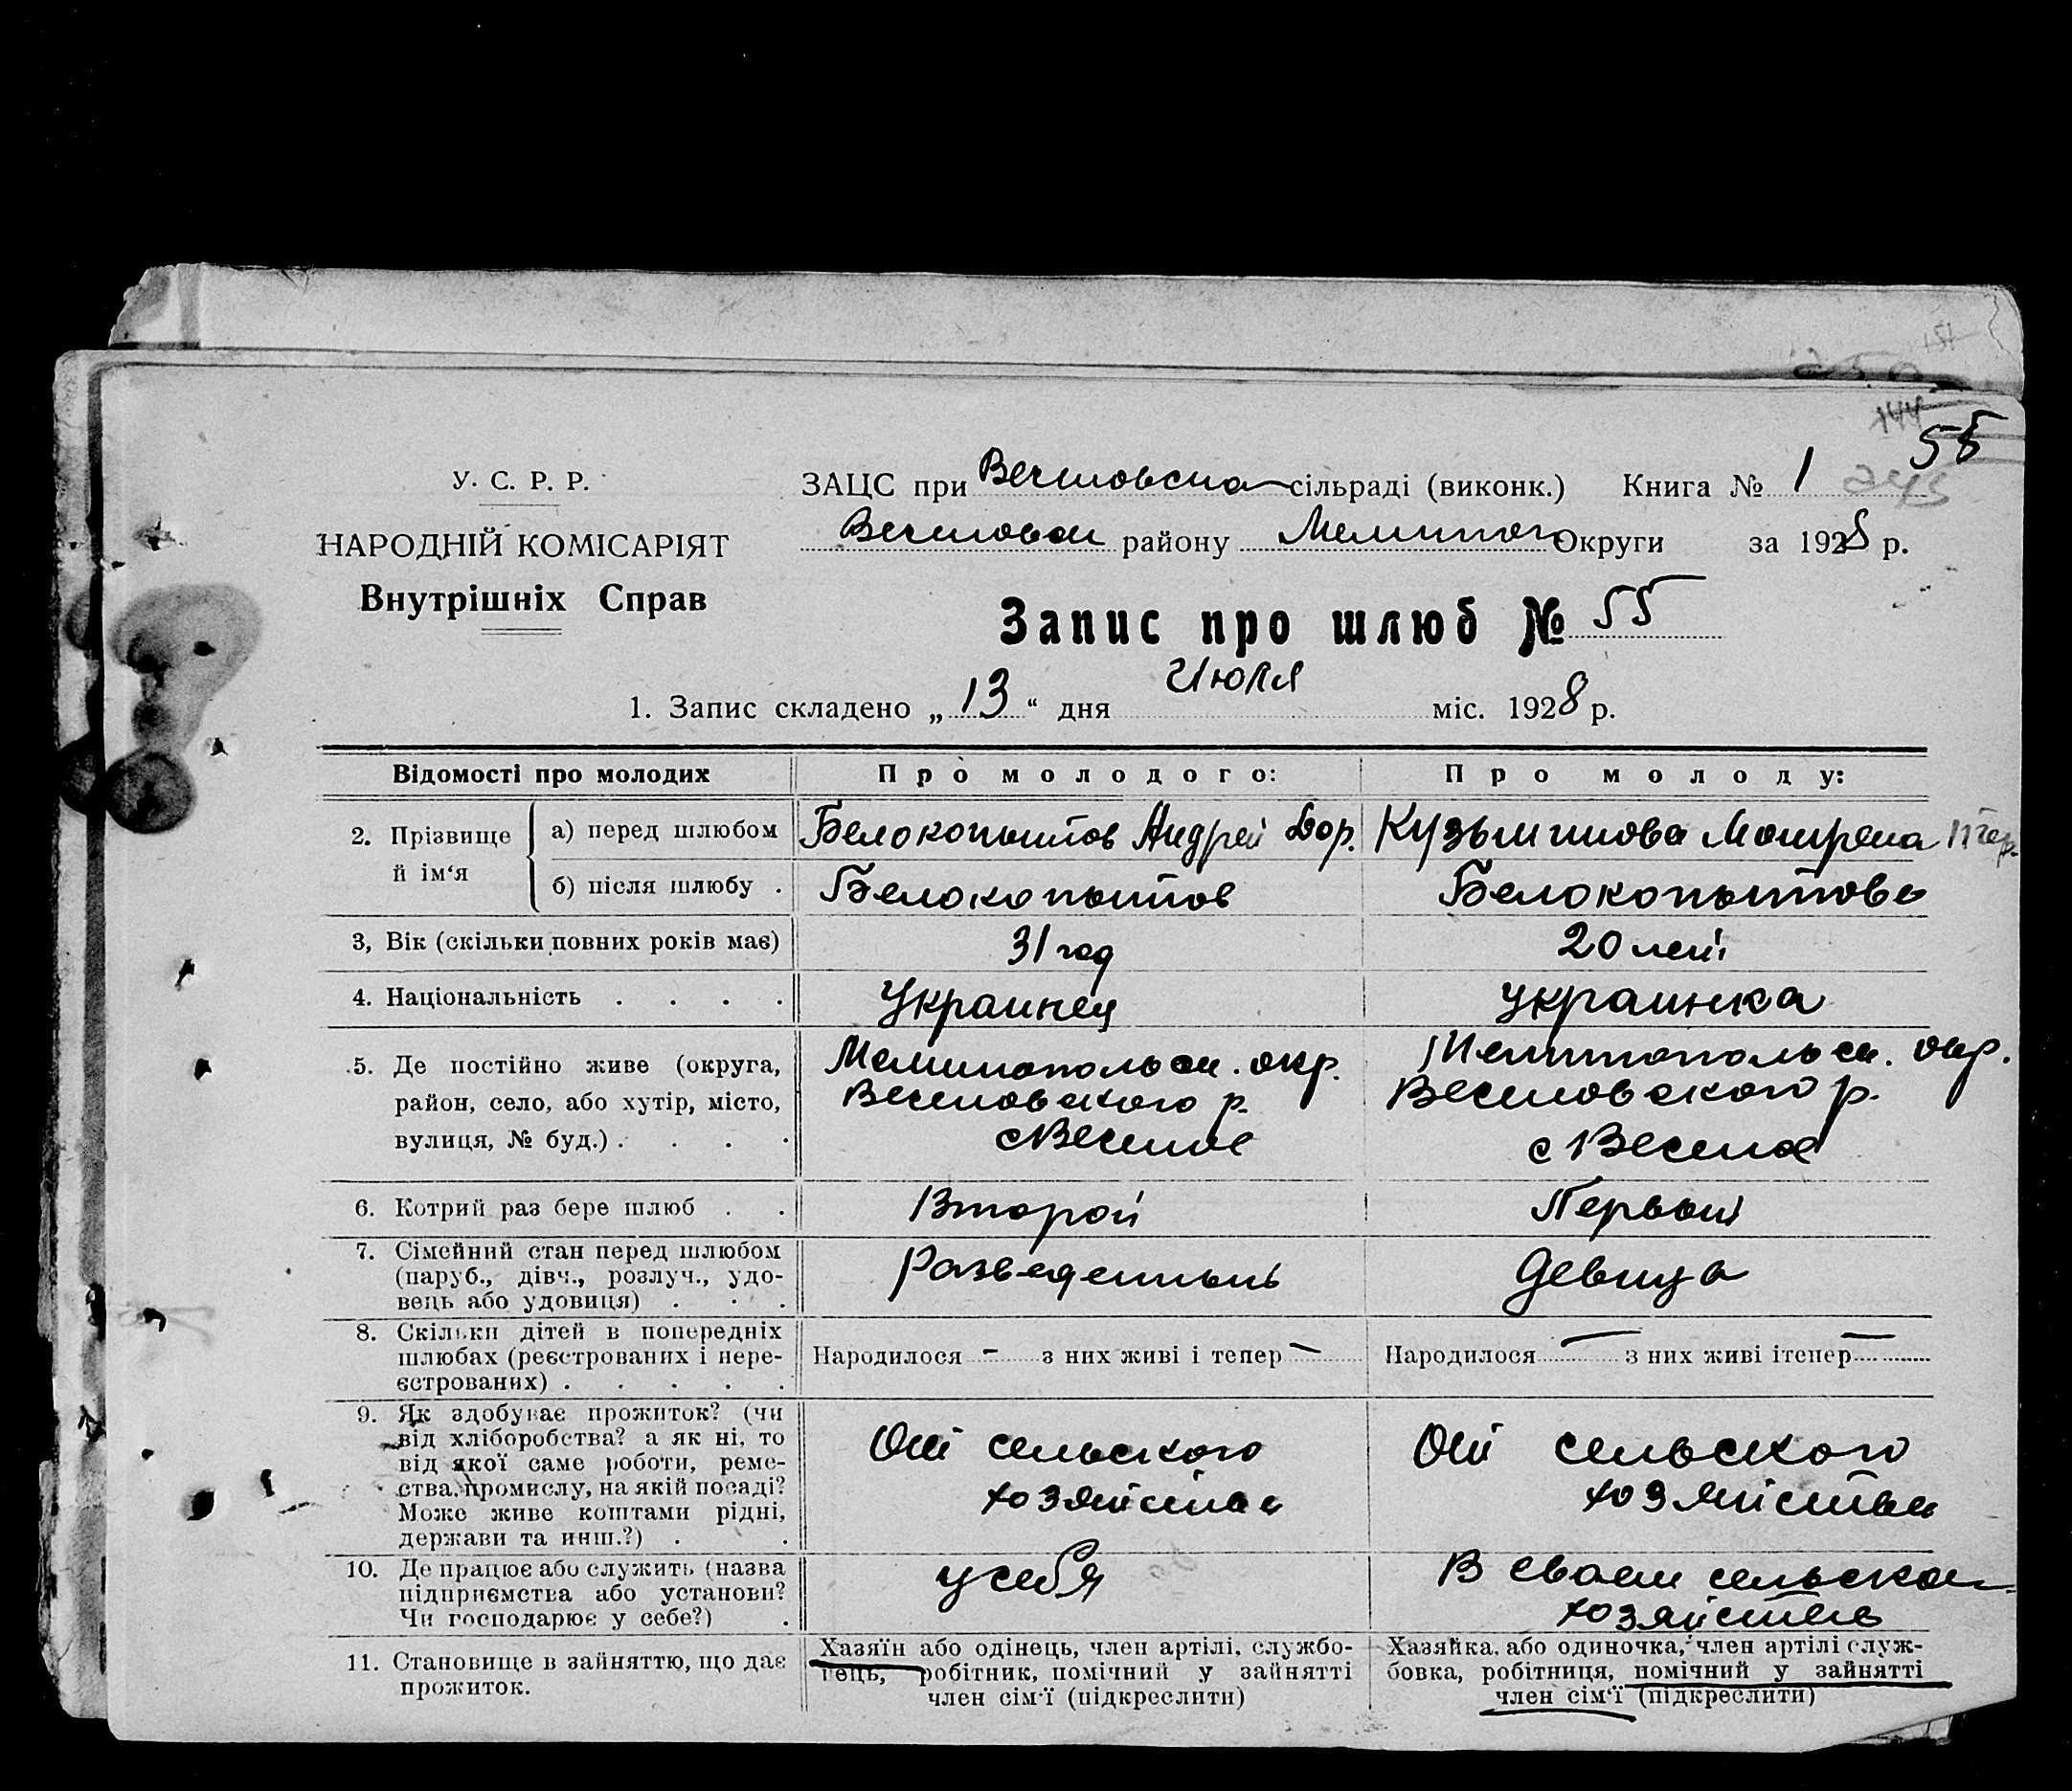 У. С. Р. Р.
НАРОДНІЙ КОМІСАРІЯТ
Внутрішніх Справ
ЗАЦС при Веселовска сільраді (виконк.) Книга № 1
району Мелитоп Округи за 1928 р.
55
Запис про шлюб № 55
1. Запис складено „ 13 “ дня Июля міс. 1928 р.
Відомості про молодих Про молодого: Про молоду:
2. Прізвище й ім‘я
а) перед шлюбом Белокопытов Андрей Кузьминова Мотрена
б) після шлюбу . Белокопытов Белокопытова
3, Вік (скільки повних років має) 31 год 20 лет
4. Національність . . . . Украинец украинка
5. Де постійно живе (округа, Мелитопольск. окр. Мелитопольск. окр.
район, село, або хутір, місто, Веселовского р. Веселовского р.
вулиця, № буд.) . . . . с Веселое с Веселое
6. Котрий раз бере шлюб . . Второй Первый
7. Сімейний стан перед шлюбом
(паруб., дівч., розлуч., удо- Разведенный девица
вець або удовиця) . . .
8. Скільки дітей в попередніх
шлюбах (реєстрованих і нере- Народилося - з них живі і тепер — Народилося — з них живі ітепер —
єстрованих) . . . . .
9. Як здобуває прожиток? (чи
від хліборобства? а як ні, то От сельского От сельского
від якої саме роботи, реме-
ства, промислу, на якій посаді? хозяйства хозяйства
Може живе коштами рідні,
держави та инш.?) . .
10. Де працює або служить (назва у себя В своем сельском
підприємства або установи? хозяйстве
Чи господарює у себе?) .
11. Становище в зайняттю, що дає
прожиток.
Хазяїн або одінець, член артілі, службо-
вець, робітник, помічний у зайнятті
член сім‘ї (підкреслити)
Хазяйка, або одиночка, член артілі служ-
бовка, робітниця, помічний у зайнятті
член сім‘ї (підкреслити)